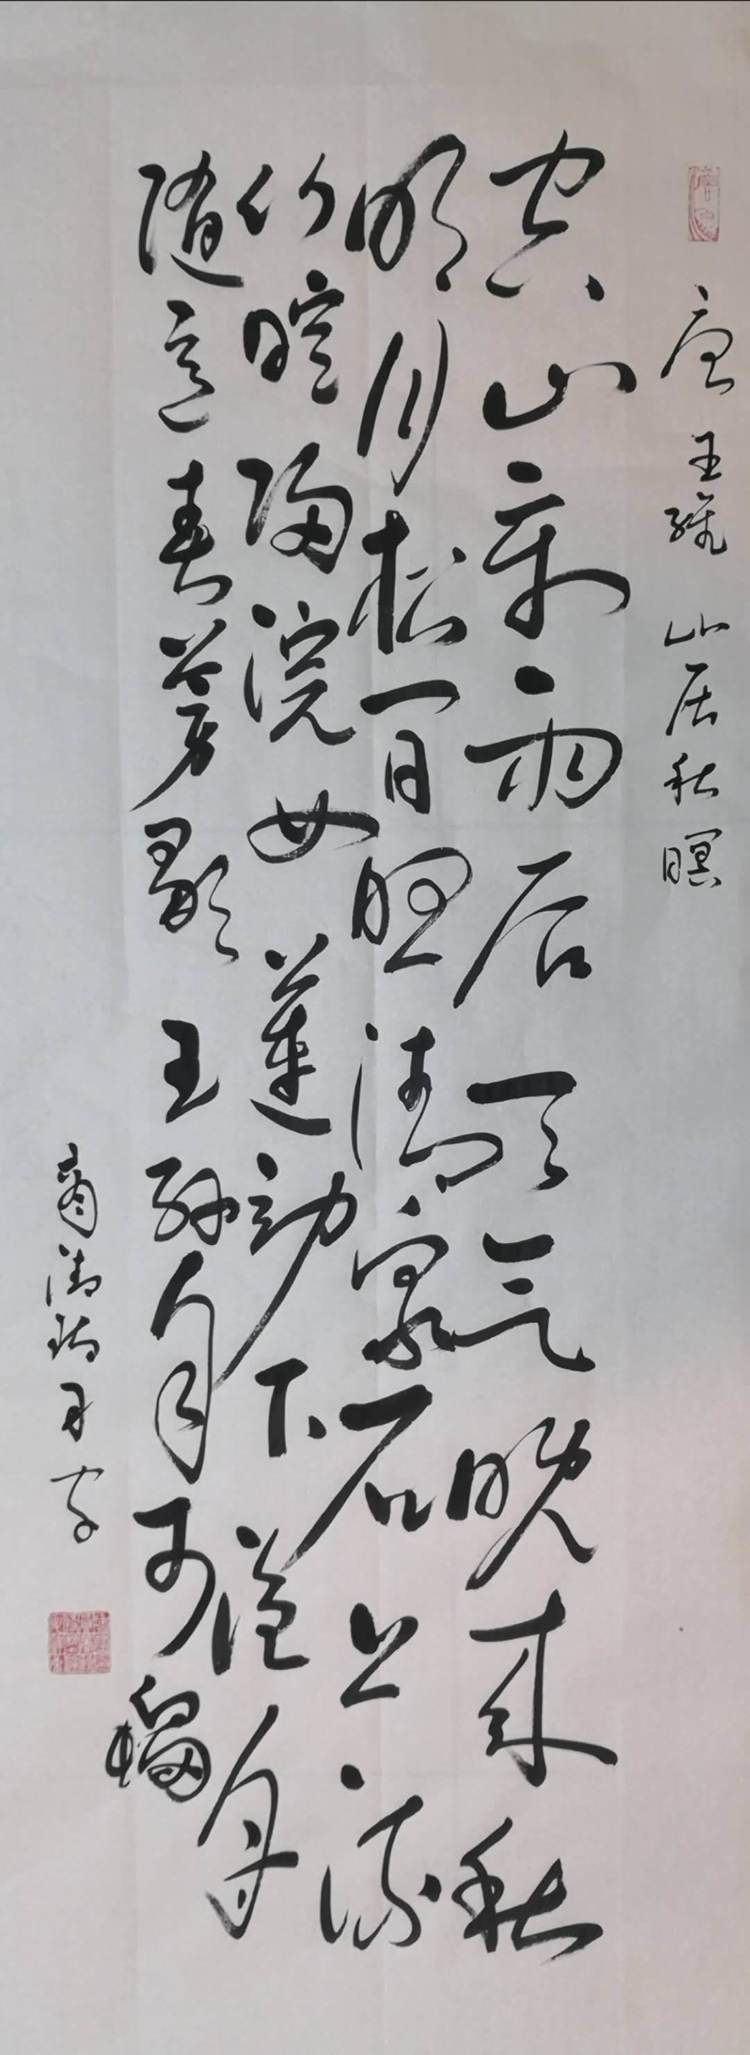 唐 王维 山居秋暝
空山新雨后天气晚来秋
明月松间照清泉石上流
竹喧归浣女莲动下渔舟
随意春芳歇王孙自可留